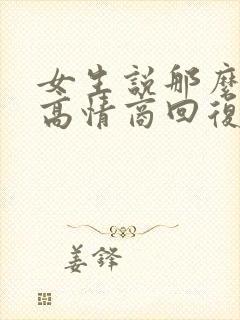 女生説那麼
高情商回復
姜鐸